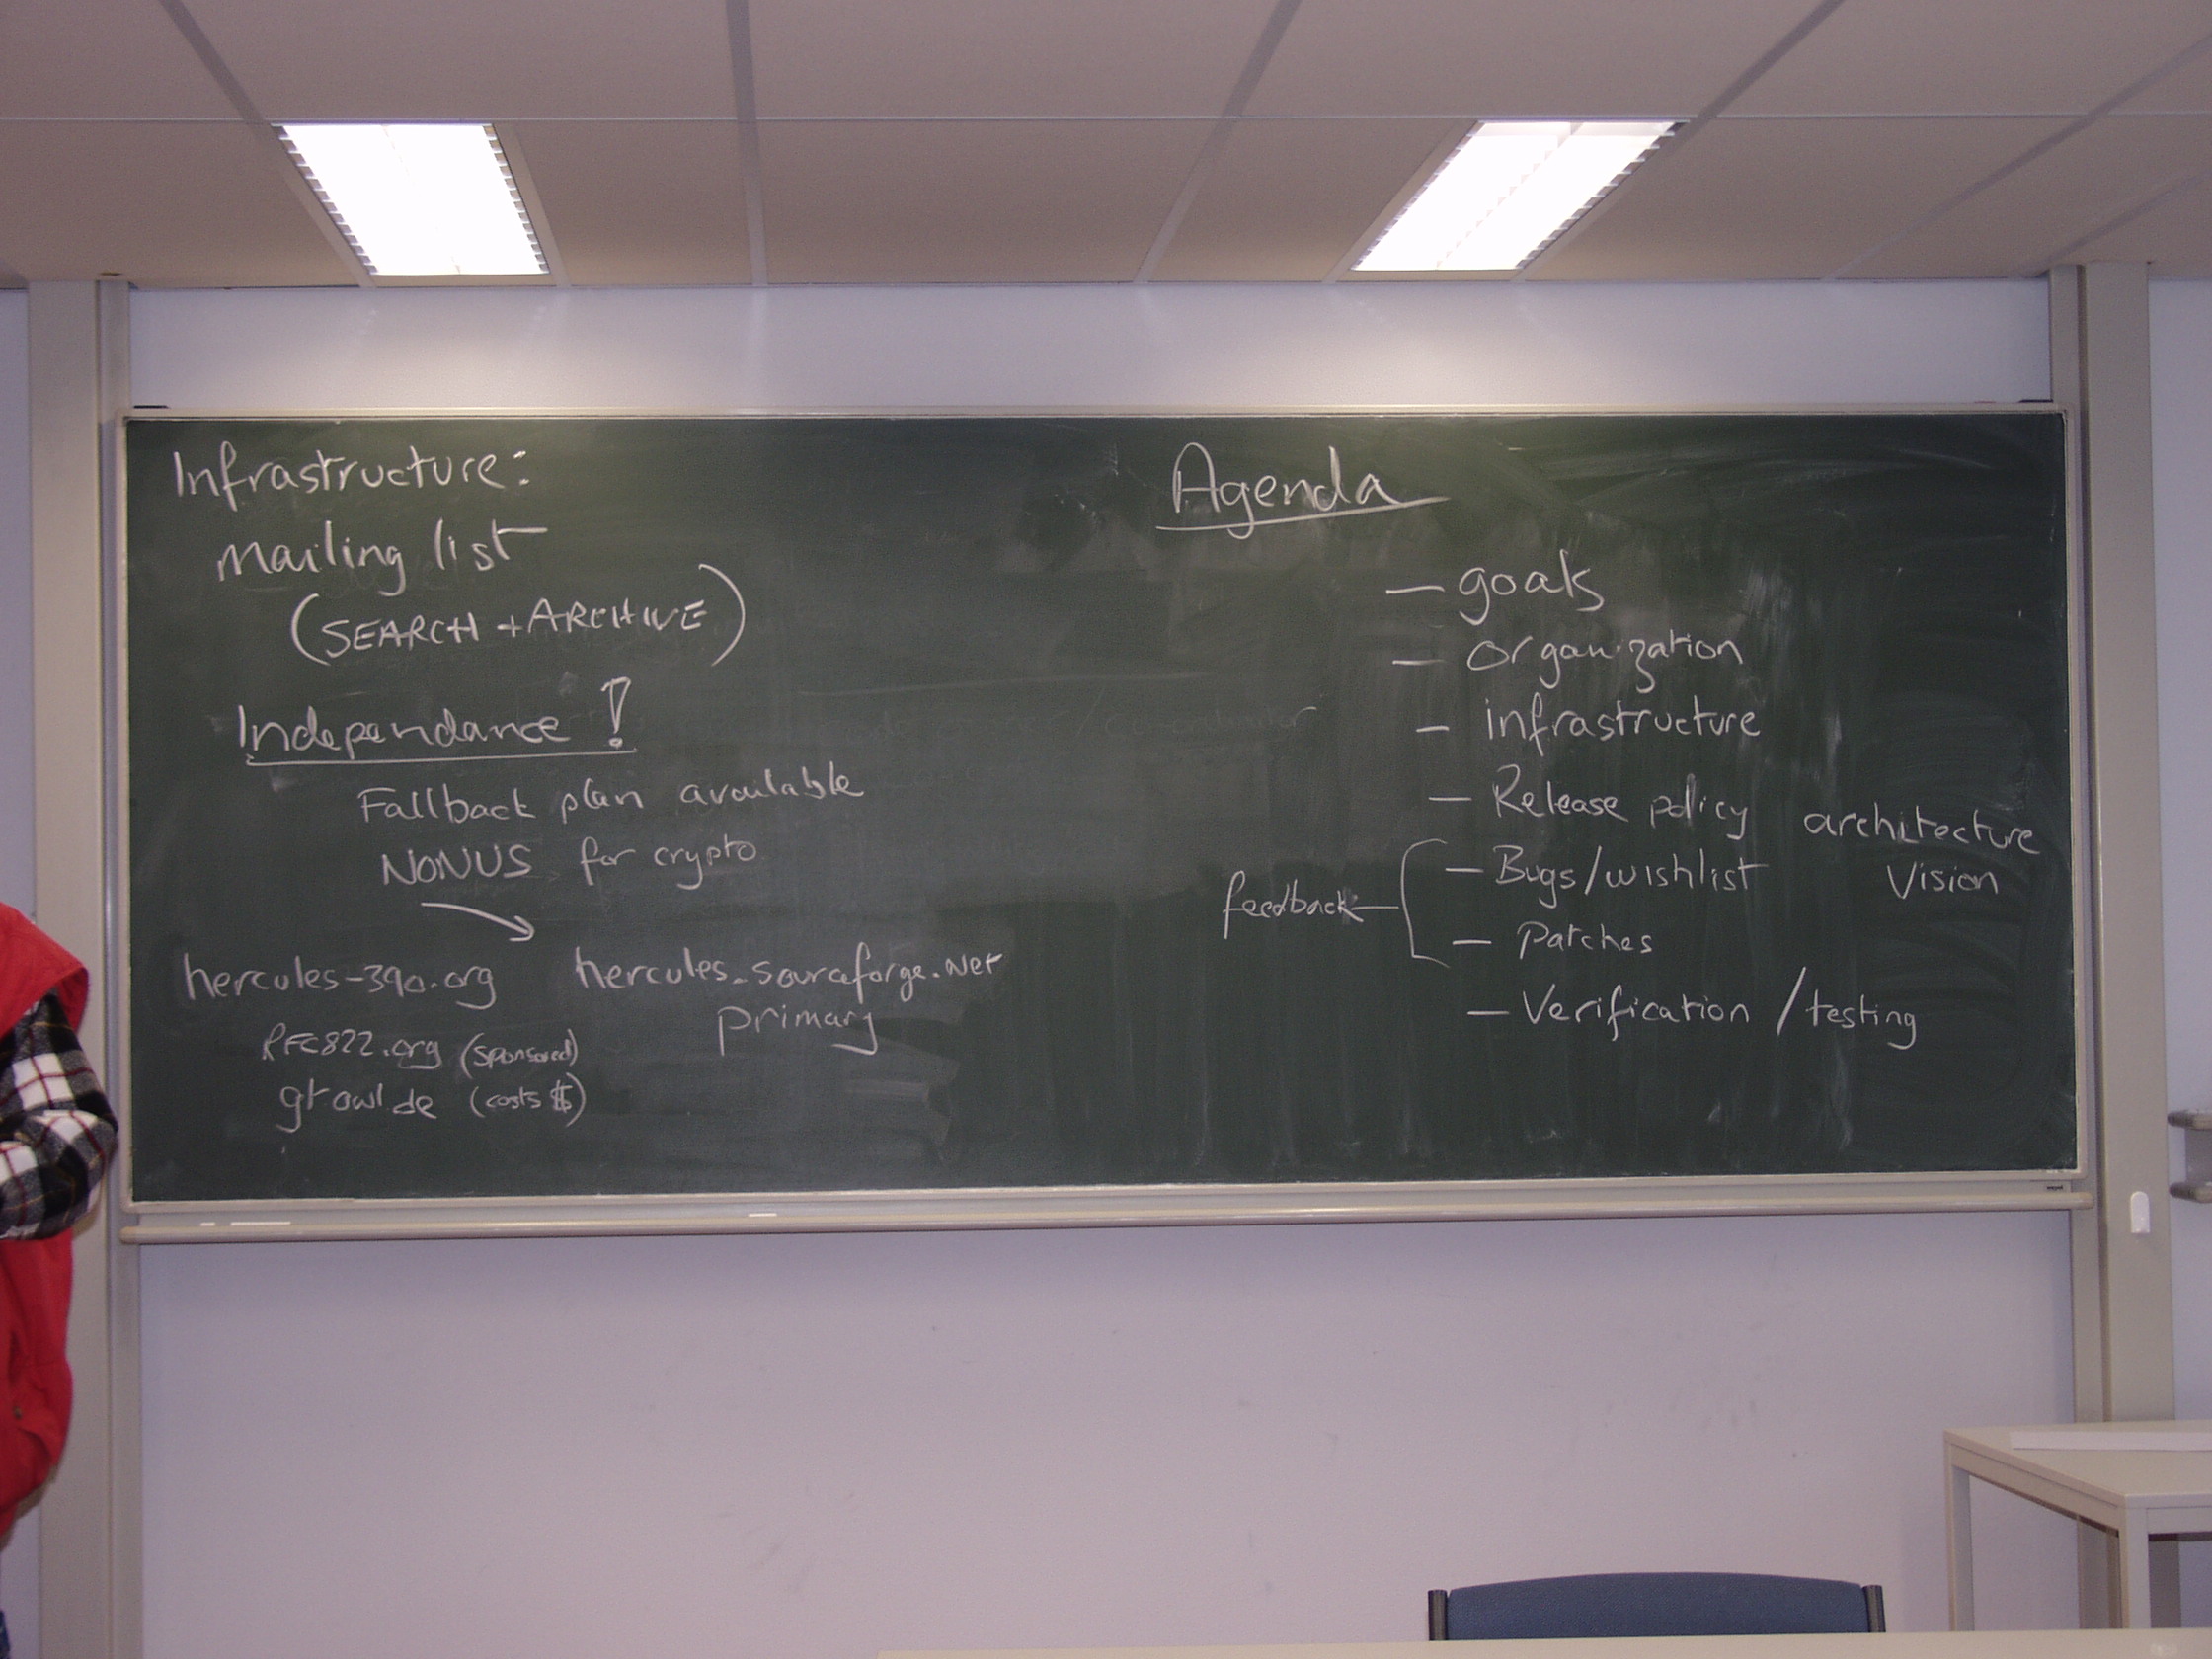 Infrastructure:
mailing list
(SEARCH + ARCHIVE)
Independance!
Fallback plan available
NONUS for crypto
hercules-390.org
hercules.sourceforge.net
primary
RFC822.org (sponsored)
(costs $)
Agenda
— goals
— organization
— infrastructure
— Release policy
architecture
Vision
feedback
— Bugs/wishlist
— Patches
— Verification / testing